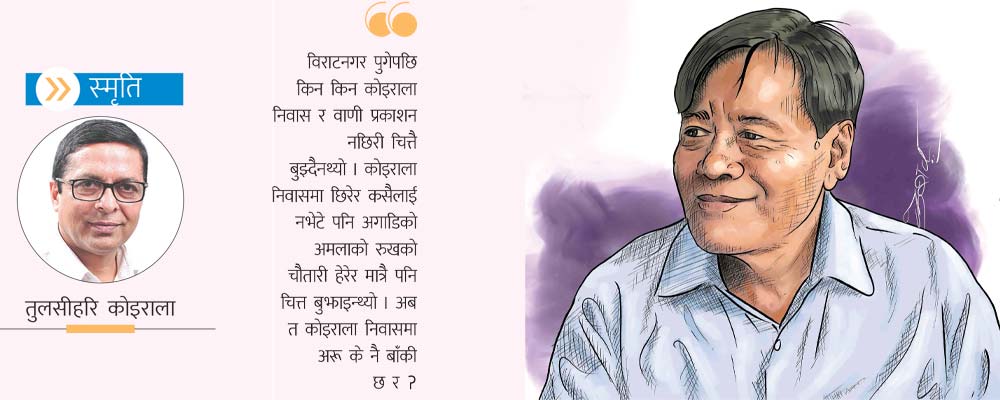 स्मृति
तुलसीहरि कोइराला
विराटनगर पुगेपछि
किन किन कोइराला
निवास र वाणी प्रकाशन
नछिरी चित्तै
बुझ्दैनथ्यो । कोइराला
निवासमा छिरेर कसैलाई
नभेटे पनि अगाडिको
अमलाको रुखको
चौतारी हेरेर मात्रै पनि
चित्त बुझाइन्थ्यो । अब
त कोइराला निवासमा
अरू के नै बाँकी
छ र ?